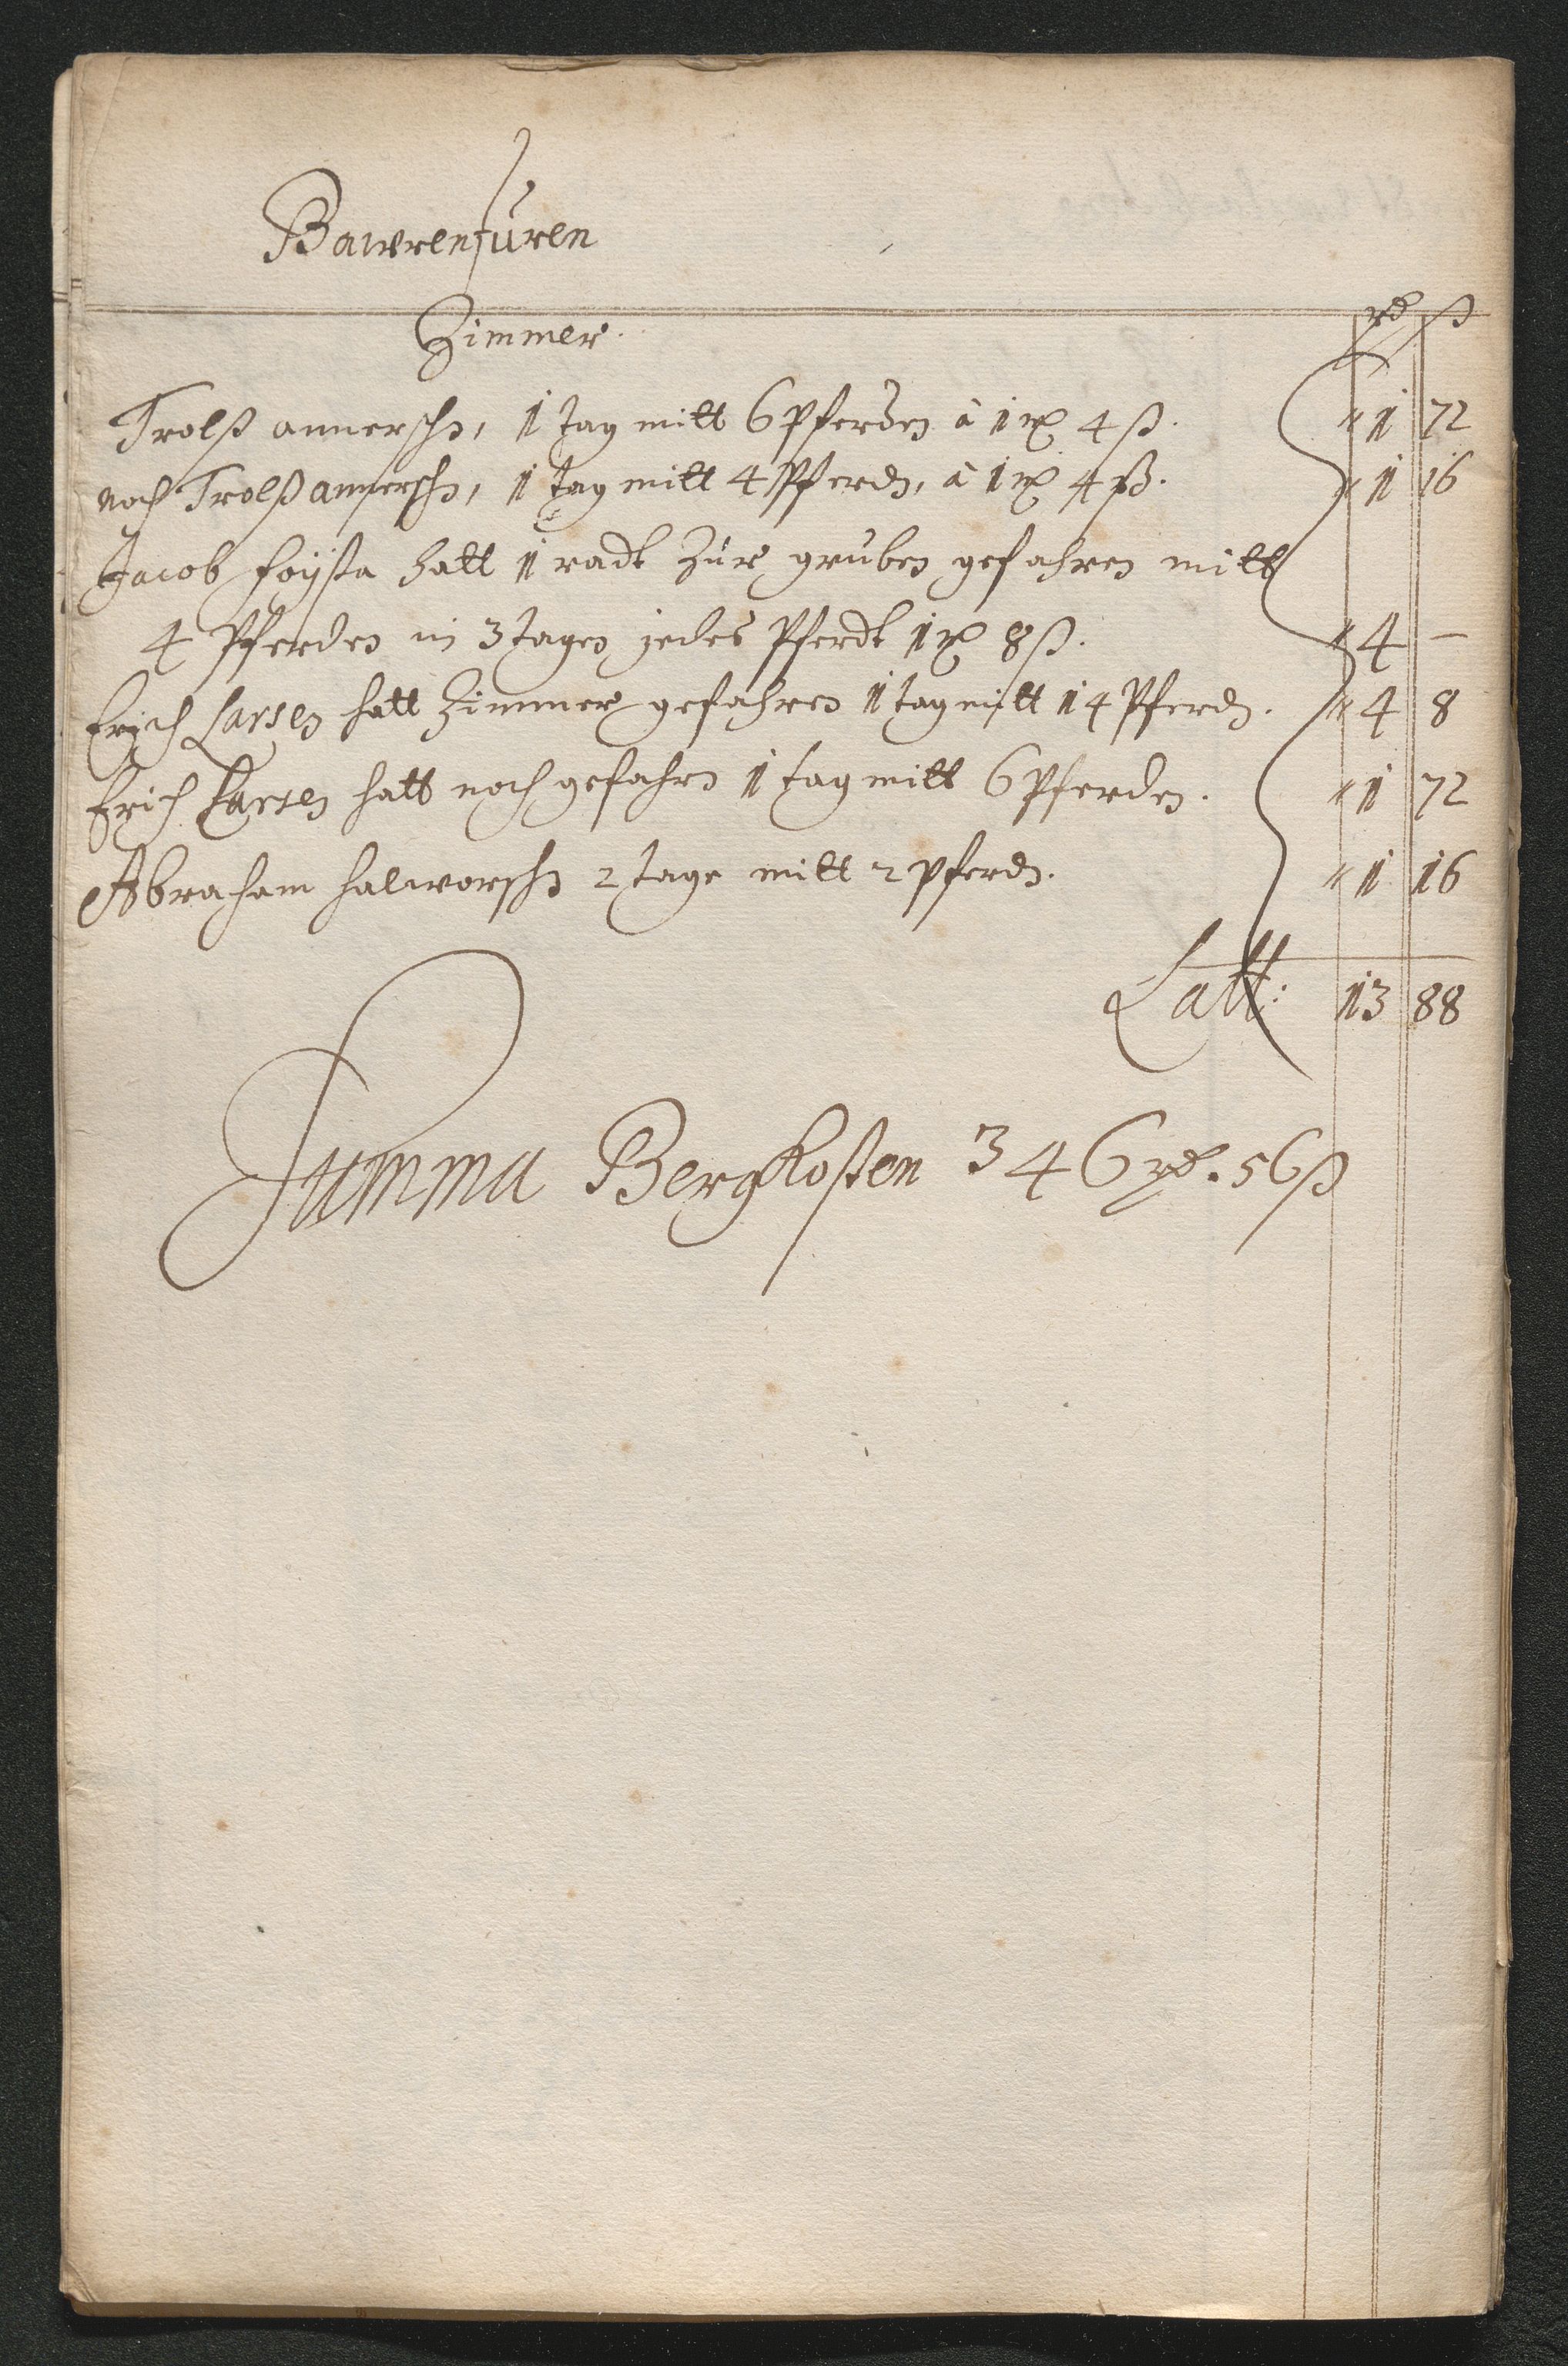 Bawrenfuren
rd ß
Zimmer.
Trolß annerschn, 1 tag mitt 6 Pferden â 1 4 ß. 1 72
noch Trolß annerschn, 1 tag mitt 4 Pferdn, â 1 4 ß. 1 16
Jacob hatt 1 radt zur gruben gefahren mitt
4 Pferden in 3 tagen jedes Pferdt 1 8 ß. 4 –
Erich Larsen hatt Zimmer gefahren 1 tag mitt 14 Pferdn. 4 8
Erich Larsen hatt noch gefahrn 1 tag mitt 6 Pferden. 1 72
Abraham halworschn 2 tage mitt 2 pferdn. 1 16
Latt: 13 88
Summa Bergkosten 346 rd. 56 ß